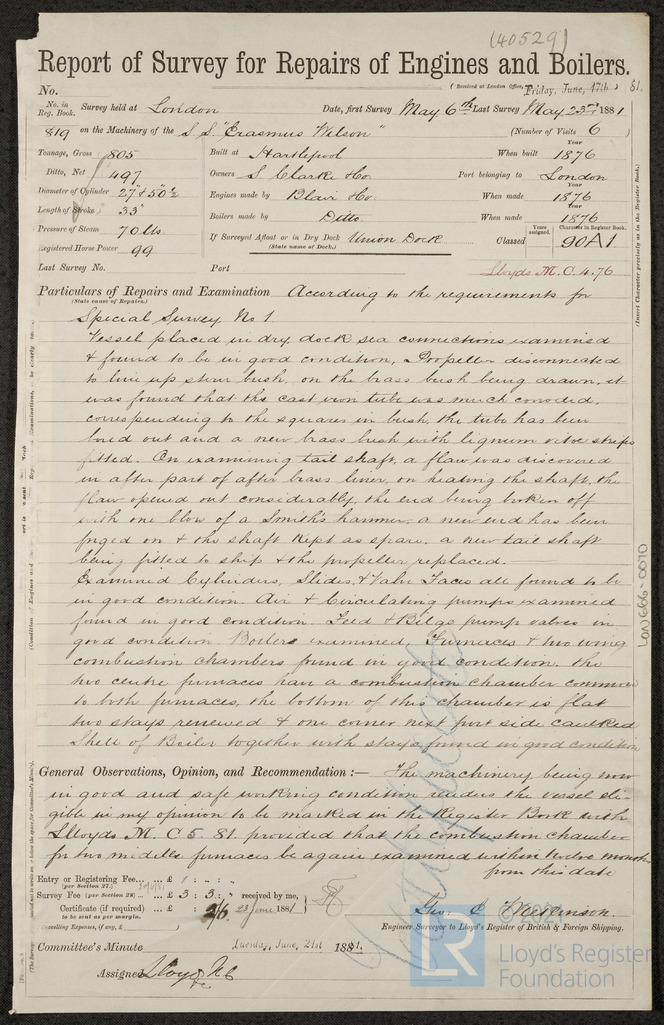 (40529)
Report of Survey for Repairs of Engines and Boilers.
(Received at London Office, Friday, June, 17th, 81.
No.
No. in Reg. Book. Survey held at London Date, first Survey May 6th Last Survey May 23rd 1881
819 on the Machinery of the S.S. "Erasmus Wilson" (Number of Visits 6
Tonnage, Gross 805 Built at Hartlepool When built Year 1876
Ditto, Net 497 Owners S Clarke & Co. Port belonging to London
Diameter of Cylinder 27" & 50½ Engines made by Blair & Co. When made Year 1876
Length of Stroke 33" Boilers made by Ditto When made Year 1876
Pressure of Steam 70 lbs If Surveyed Afloat or in Dry Dock Union Dock Classed Years assigned. Character in Register Book. 90A1
(State name of Dock.)
Registered Horse Power 99
Last Survey No. Port Lloyds M.C. 4.76
Particulars of Repairs and Examination According to the requirements for
(State cause of Repairs.)
Special Survey No 1
Vessel placed in dry dock sea connections examined
& found to be in good condition, Propeller disconnected
to line up stern bush, on the brass bush being drawn, it
was found that the cast iron tube was much corroded,
corresponding to the squares in bush, the tube has been
bored out and a new brass bush with lignum vitae strips
fitted. On examining tail shaft, a flaw was discovered
in after part of after brass liner, on heating the shaft, the
flaw opened out considerably, the end being broken off
with one blow of a Smith's hammer, a new end has been
forged on & the shaft kept as spare, a new tail shaft
being fitted to ship & the propeller replaced.
Examined Cylinders, Slides, & Valve Faces all found to be
in good condition. Air & Circulating pumps examined
found in good condition. Feed & Bilge pump valves in
good condition Boilers examined, Furnaces & two wing
combustion chambers found in good condition, the
two centre furnaces have a combustion chamber common
to both furnaces, the bottom of this chamber is flat
two stays renewed & one corner next port side caulked
Shell of Boiler together with stays found in good condition
General Observations, Opinion, and Recommendation :— The machinery being now
in good and safe working condition renders the vessel eli-
gible in my opinion to be marked in the Register Book with
Lloyds M.C 5.81. provided that the combustion chamber
for two middle furnaces be again examined within twelve months
from this date
Entry or Registering Fee... £ 1 : " : "
(per Section 27.)
Survey Fee (per Section 28) ... £ 3 : 3 : " received by me,
Certificate (if required) ... £ : 2/6 23 June 1881
to be sent as per margin.
(Travelling Expenses, if any, £ )
Geo. C
Engineer Surveyor to Lloyd's Register of British & Foreign Shipping.
Committee's Minute Tuesday, June, 21st 1881.
Assigned Lloyds M.C.
(Insert Character precisely as in the Register Book.)
LON666-0070
© 2021
LR
Lloyd's Register
Foundation